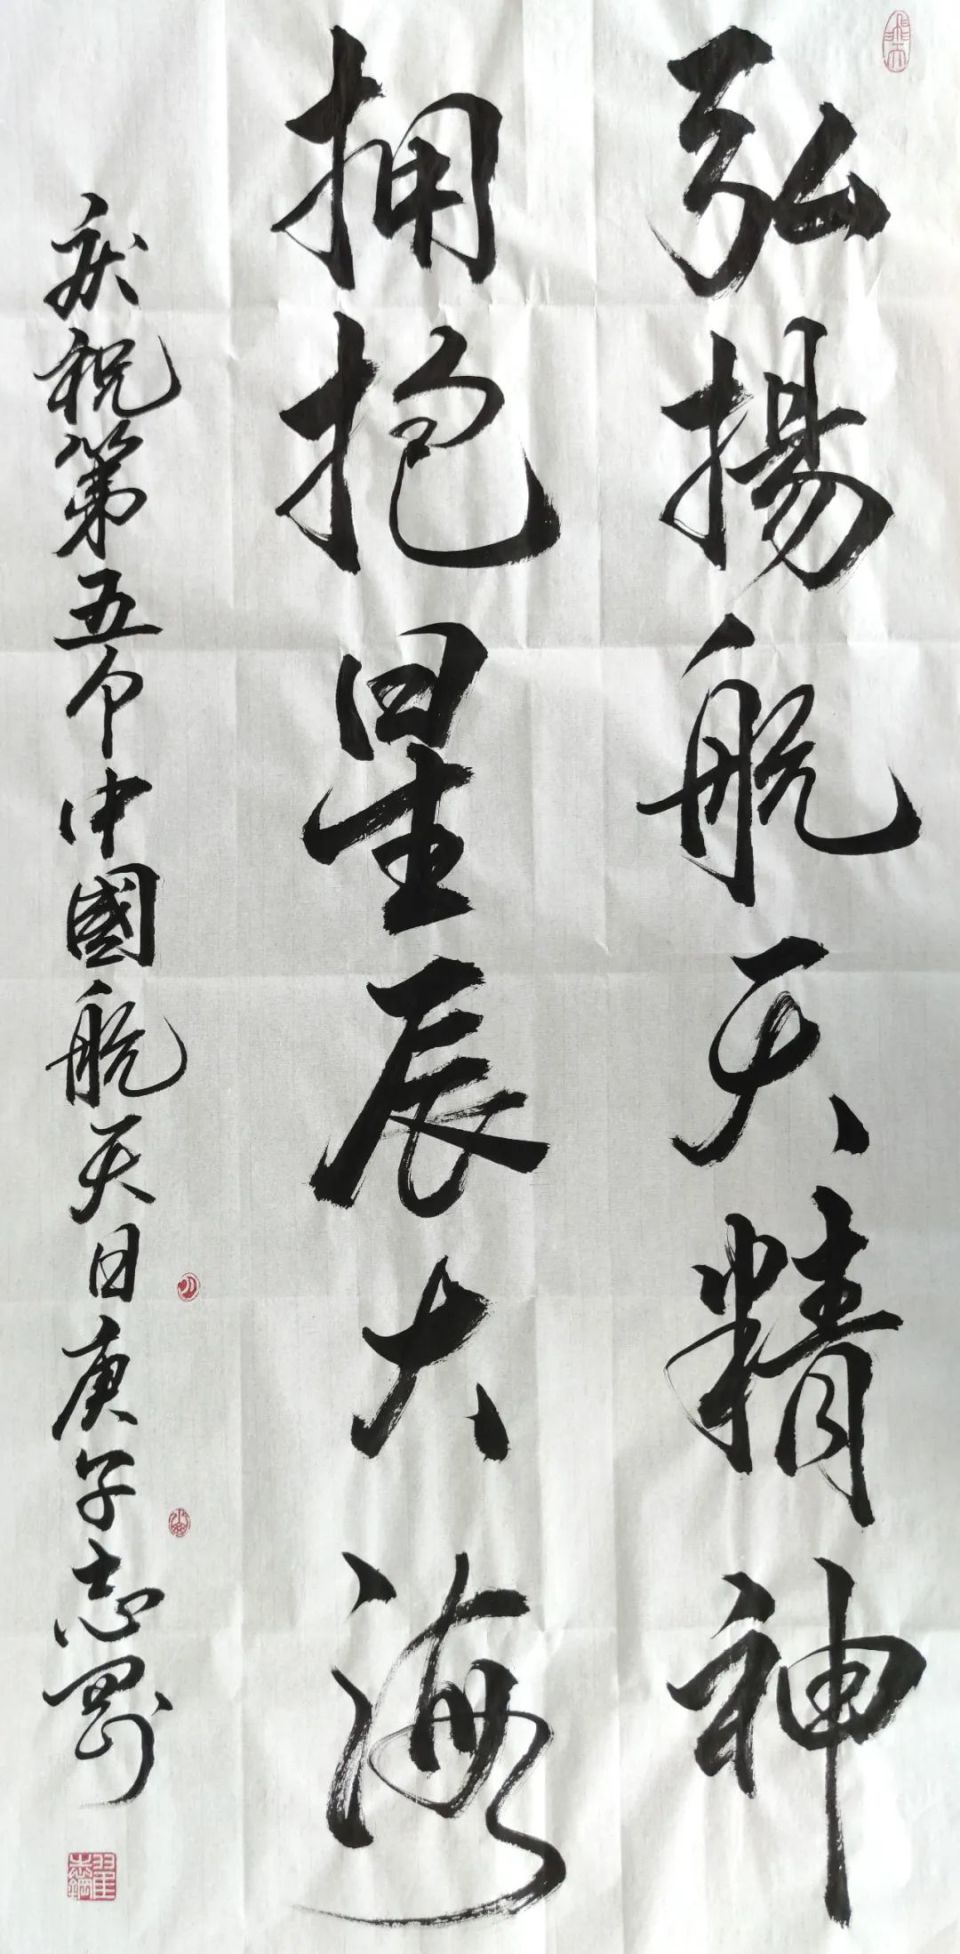 弘揚航天精神
拥抱星辰大海
庆祝第五个中國航天日庚子志罡